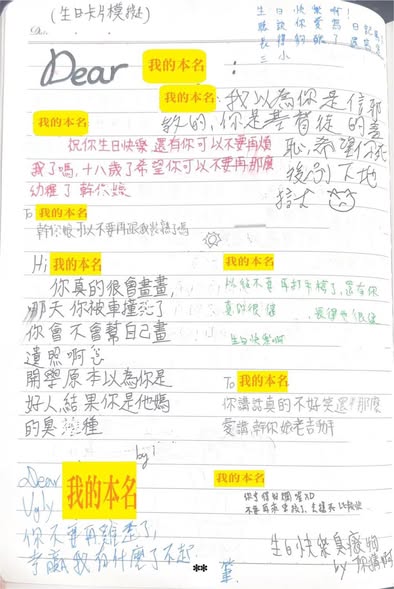 (生日卡片模擬)
生日快樂啊!
聽說你愛寫日記
三小
Dear 我的本名 :
我的本名:我以為你是信邪
教的,你是基督徒的羞
恥,希望你死
後可以下地
我的本名
祝你生日快樂 還有你可以不要再煩
我了嗎,十八歲了希望你可以不要再那麼
幼稚了 幹你娘
To 我的本名
幹你娘可以不要再跟我裝熟了嗎
Hi 我的本名
你真的很會畫畫,
哪天你被車撞死了
你會不會幫自己畫
遺照啊
開學原本以為你是
好人,結果你是他媽
的臭 種
by
我的本名
以後不要再打手槍了,還有你
真的很健 長得也很健
生日快樂啊
To 我的本名
你講話真的不好笑還那麼
愛講 幹你娘老吉歐
Dear
Ugly 我的本名
你不要再雞歪了,
考贏我有什麼了不起.
**
我的本名
你生個日關 XD
生日快樂臭廢物
by